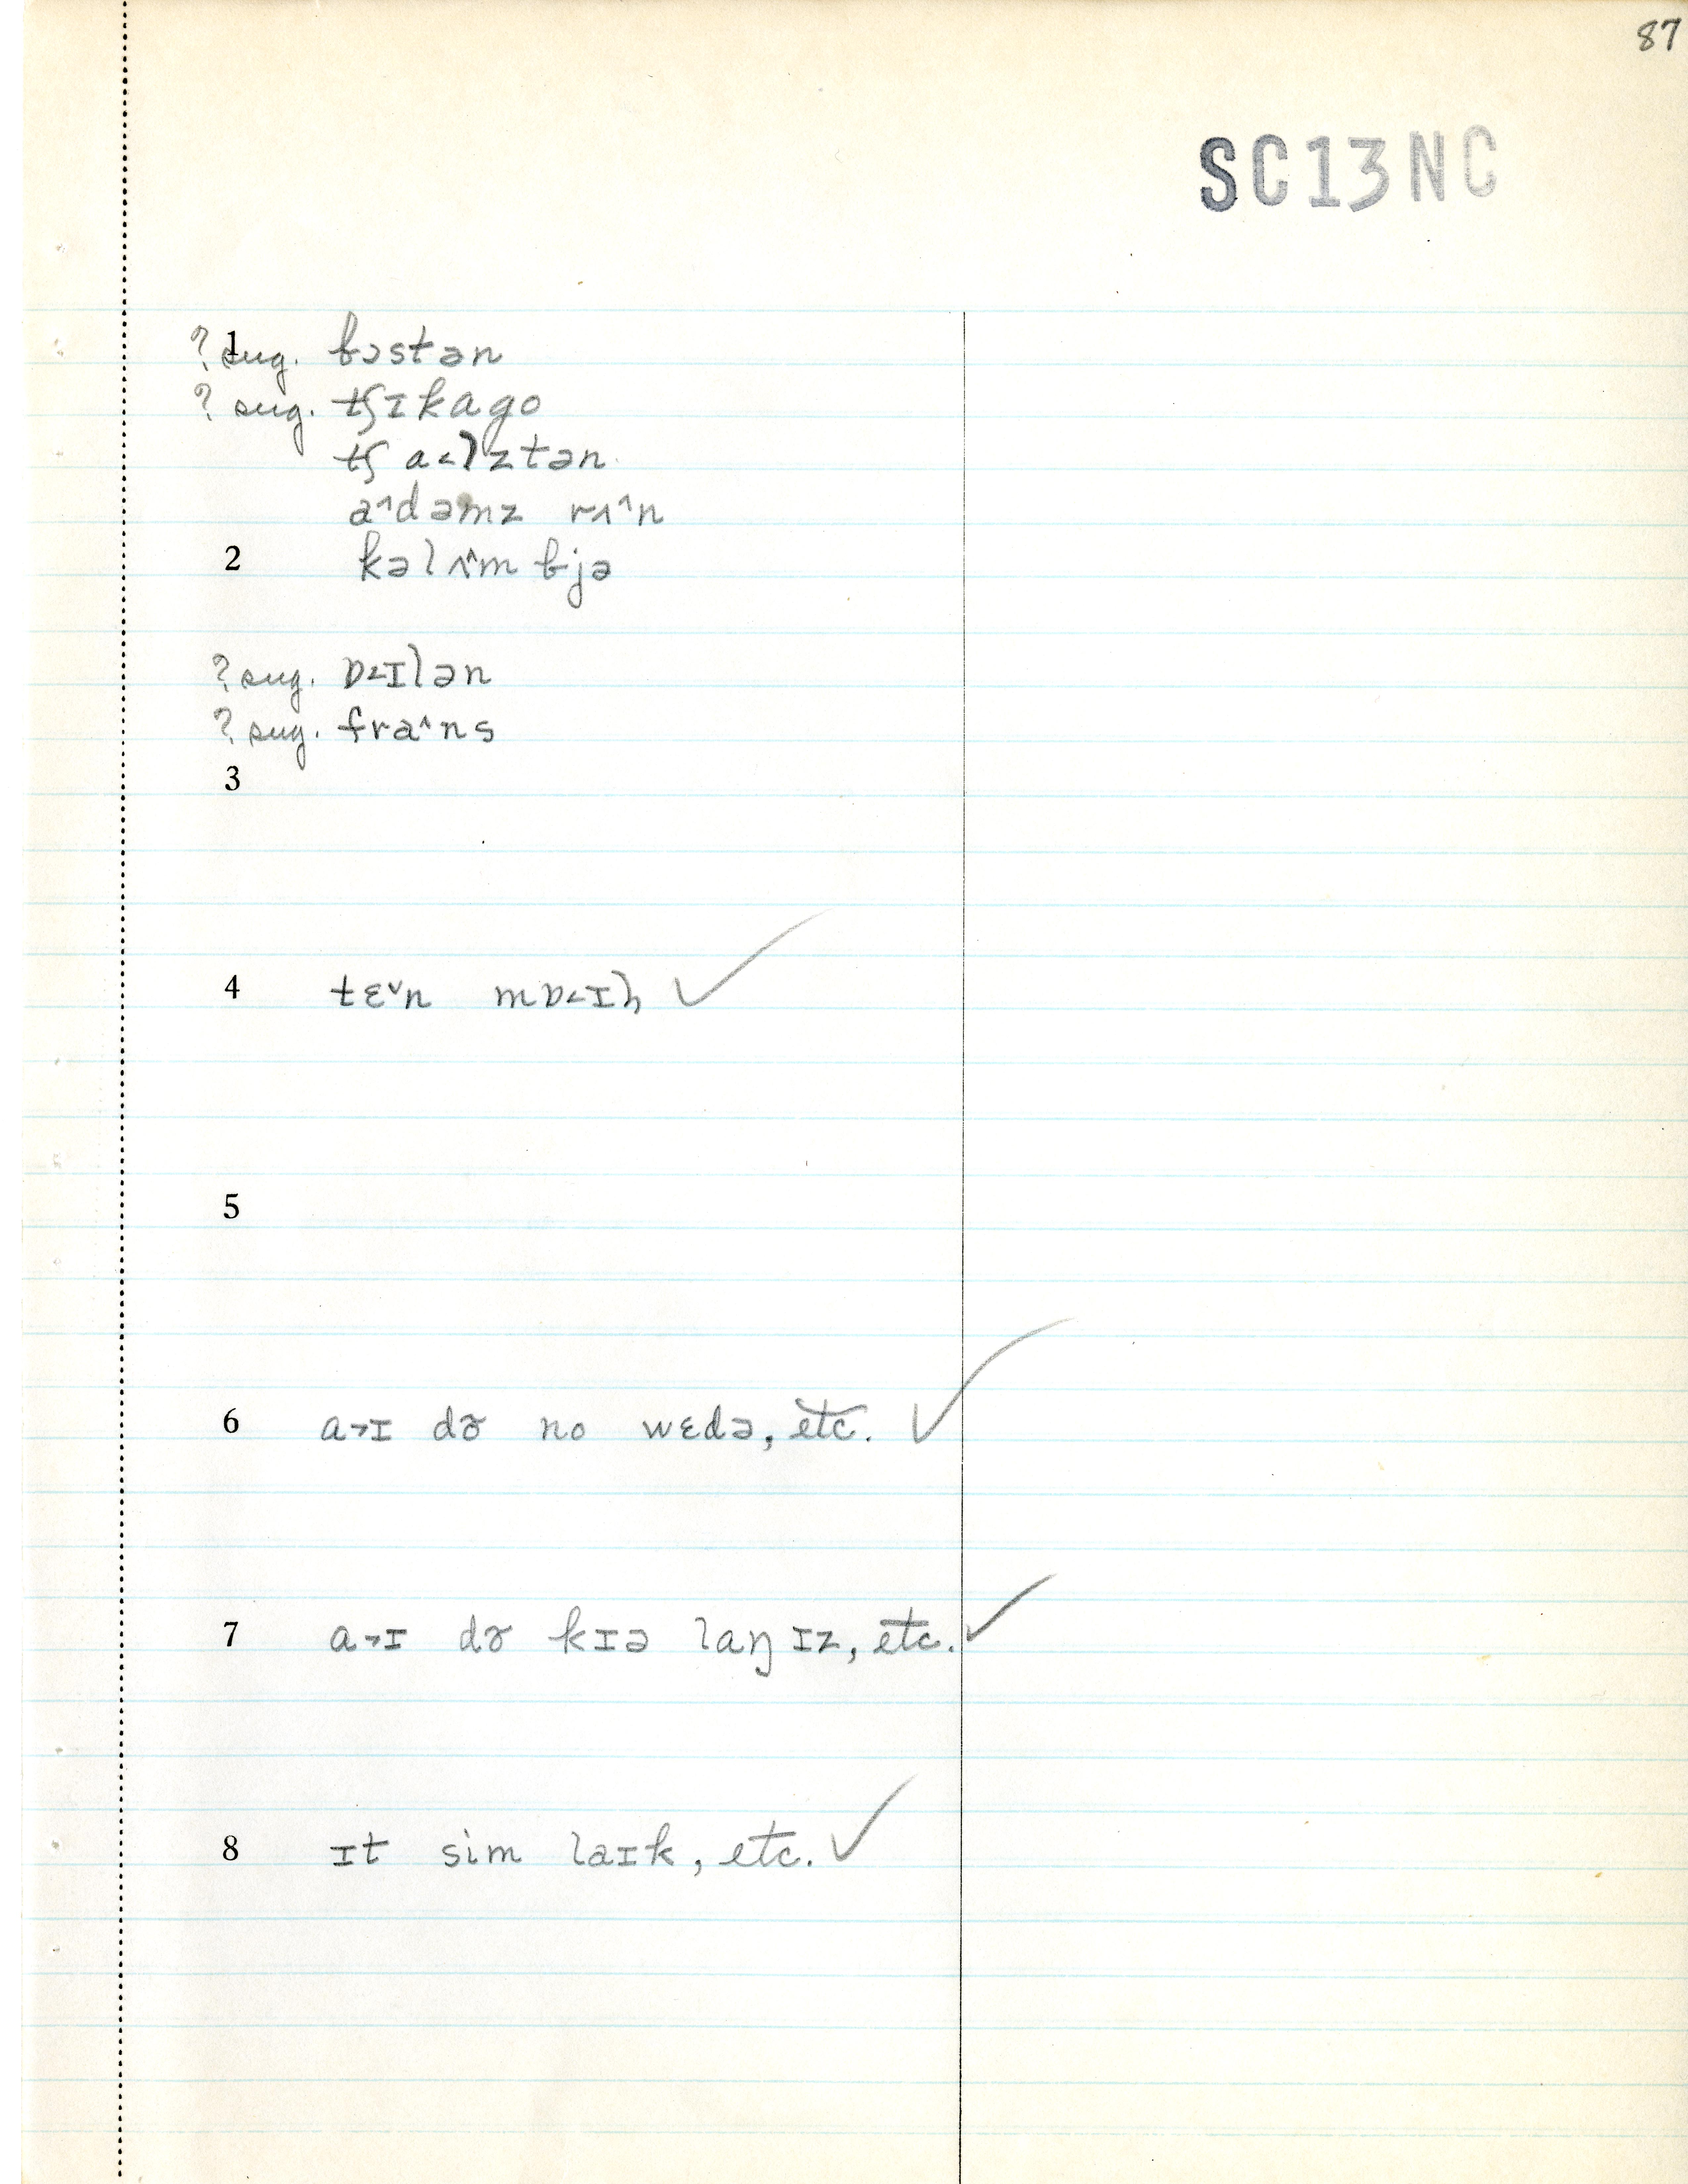 87
SC13NC
1
? sug. bɔstən
? sug. tʃɪkago
tʃa˂lztən
a˄dəmz rʌ˄n
2 kəlʌ˄mbjə
? sug. ɒ˂ɪlən
? sug. fra˄ns
3
4 tɛ˅n mɒ˂ɪl̥ ✓
5
6 a˃ɪ dɤ no wɛdə, etc. ✓
7 a˃ɪ dɤ kɪə laŋɪz, etc. ✓
8 ɪt sim laɪk, etc. ✓